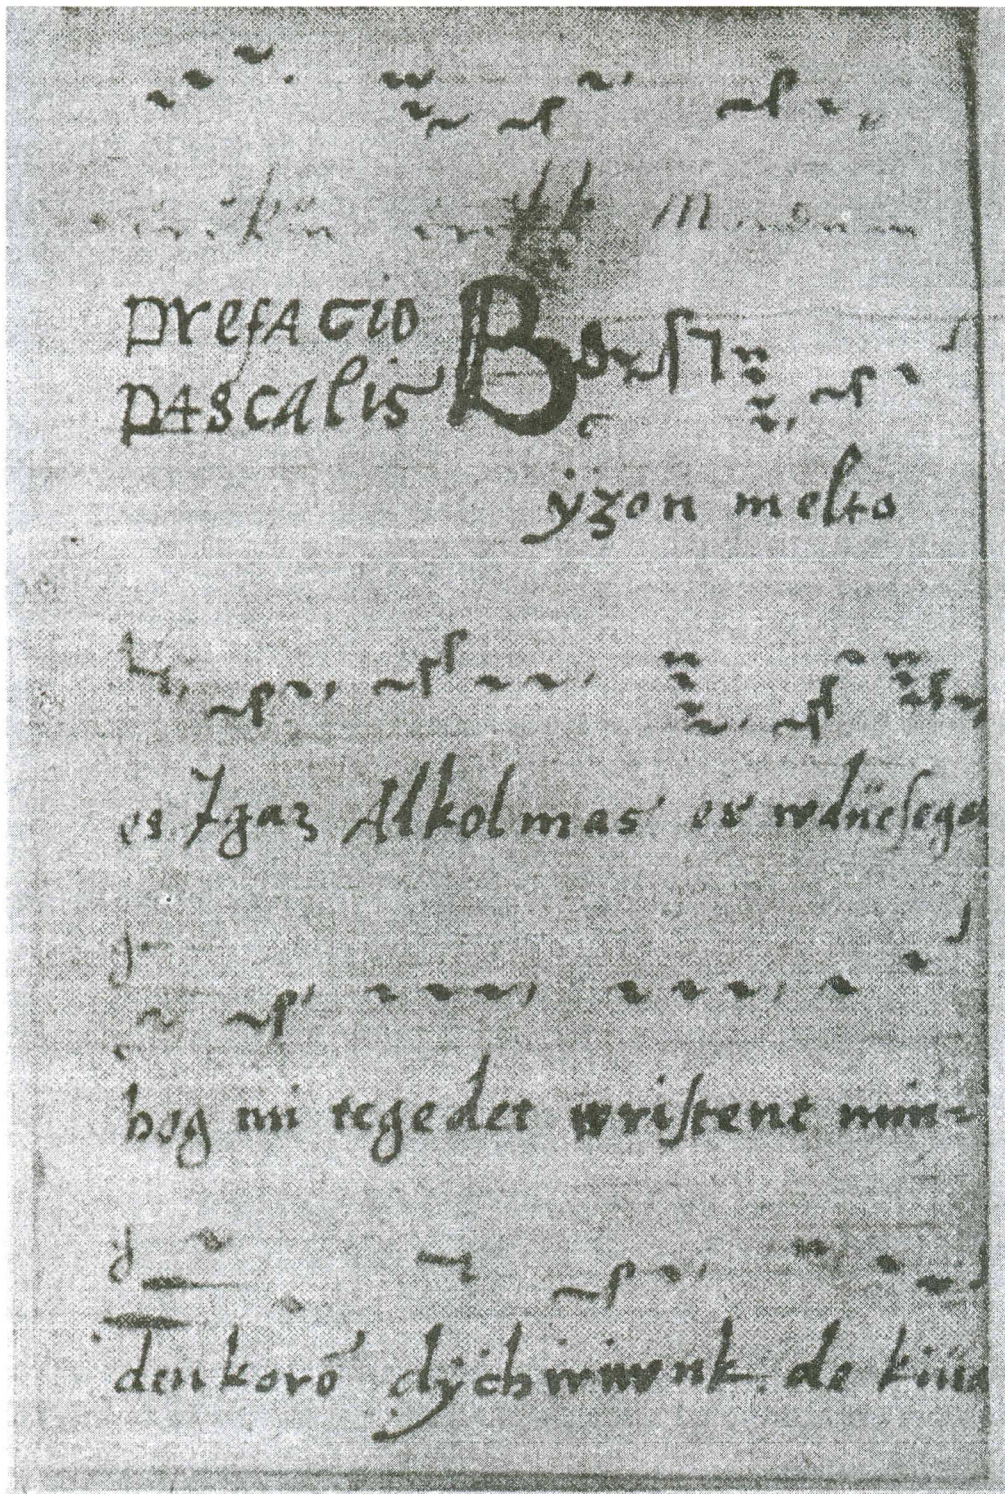 Prefatio
pascalis B
ÿzon melto
es Igaz Alkolmas es wdüesege
hog mi tegedet wristent min-
denkorō dÿchiriwnk de